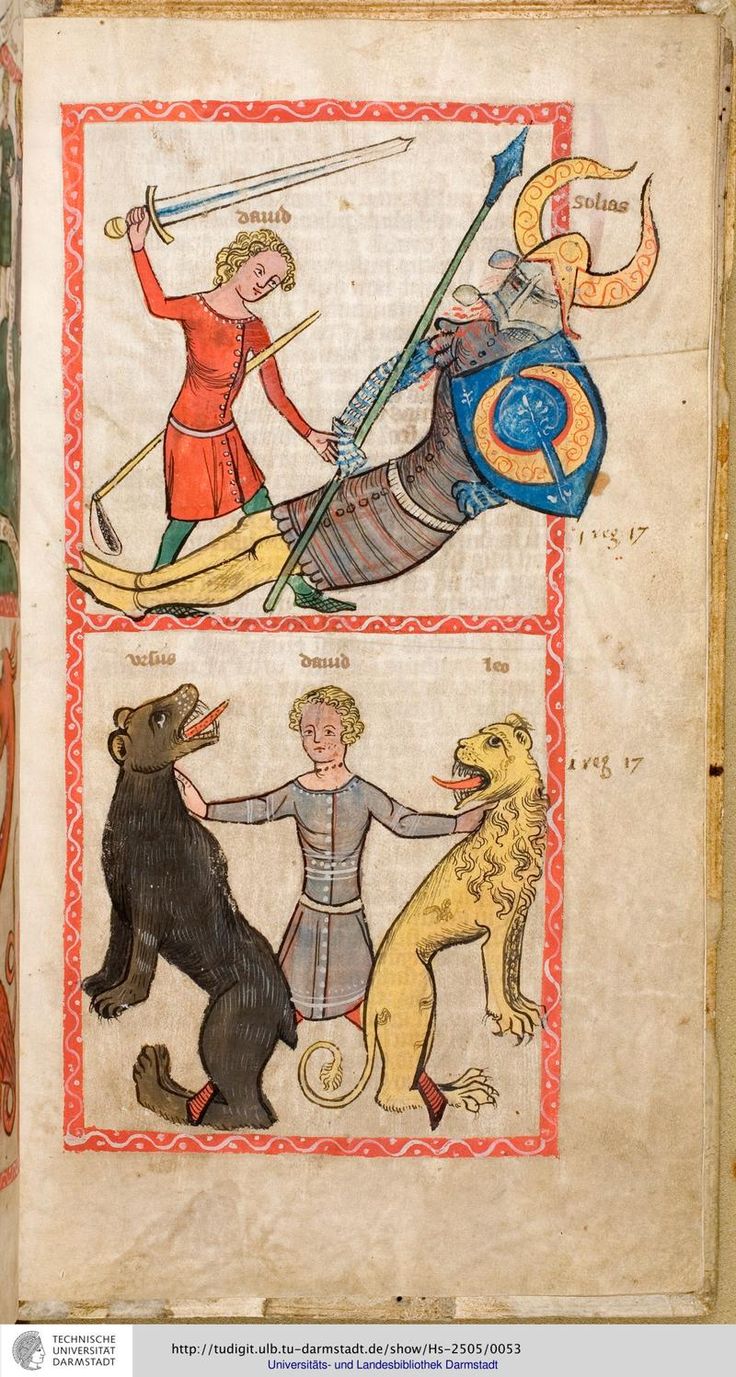 dauid
golias
i reg 17
vrsus
dauid
leo
i reg 17
TECHNISCHE
UNIVERSITÄT
DARMSTADT
http://tudigit.ulb.tu-darmstadt.de/show/Hs-2505/0053
Universitäts- und Landesbibliothek Darmstadt